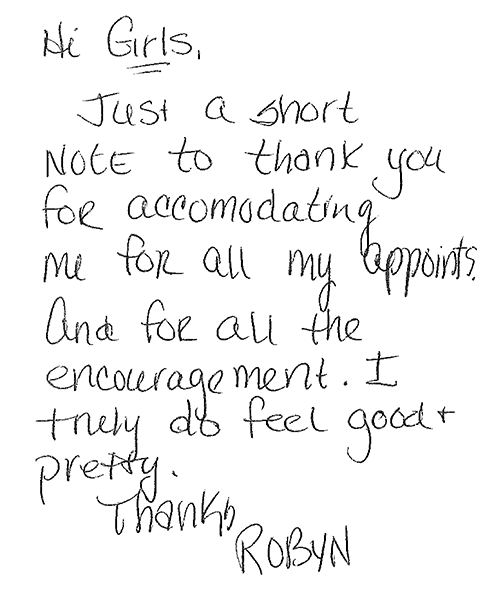 Hi Girls,
Just a short
NOTE to thank you
for accomodating
me for all my appoints.
And for all the
encouragement. I
truly do feel good +
pretty.
Thanks
ROBYN